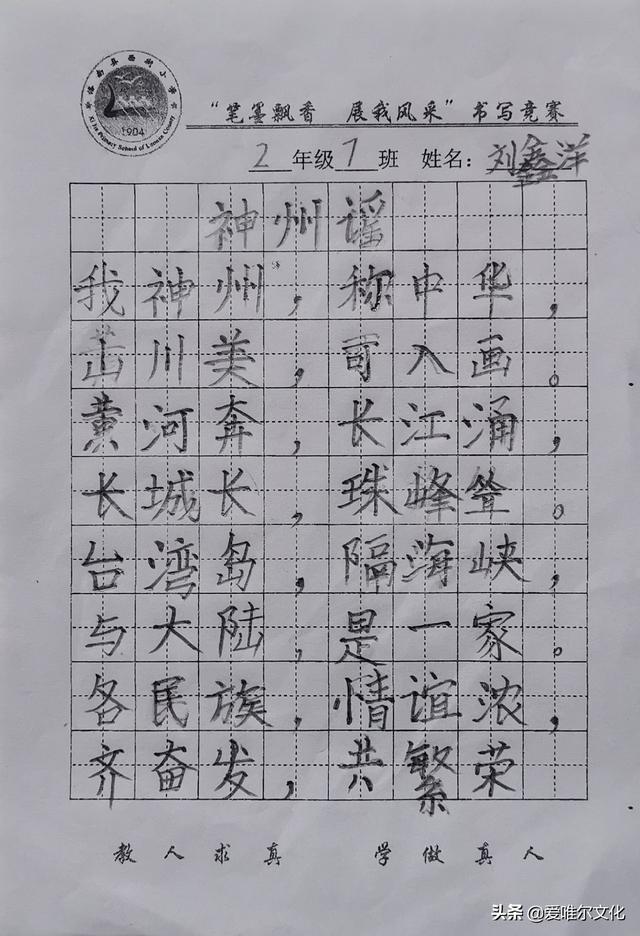 1904
"笔墨飘香 展我风采"书写竞赛
2年级7班 姓名：刘鑫洋
神州谣
我神州，称中华，
山川美，可入画。
黄河奔，长江涌，
长城长，珠峰耸。
台湾岛，隔海峡，
与大陆，是一家。
各民族，情谊浓，
齐奋发，共繁荣
教人求真 学做真人
头条 @爱唯尔文化